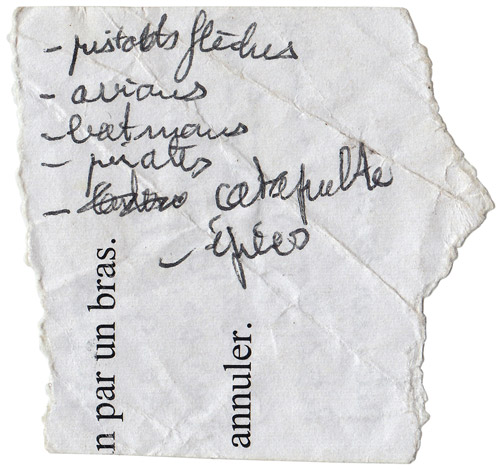 - pistolets flèches
- avions
- batmans
- pirates
- catapulte
- épées
n par un bras.
annuler.